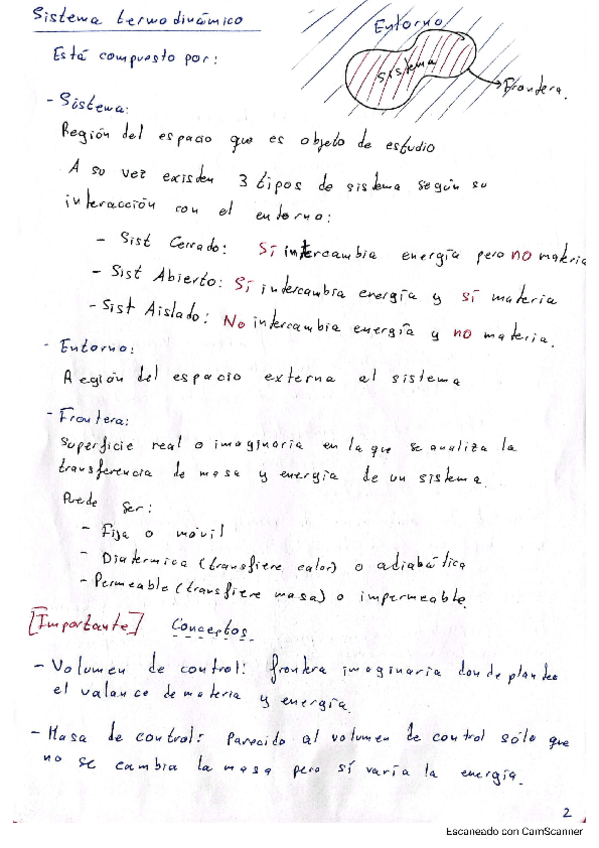 Sistema termodinámico
Entorno
Sistema
Frontera.
Está compuesto por:
- Sistema:
Región del espacio que es objeto de estudio
A su vez existen 3 tipos de sistema según su
interacción con el entorno:
- Sist Cerrado: Sí intercambia energía pero no materia
- Sist Abierto: Sí intercambia energía y sí materia
- Sist Aislado: No intercambia energía y no materia.
- Entorno:
Región del espacio externa al sistema
- Frontera:
Superficie real o imaginaria en la que se analiza la
transferencia de masa y energía de un sistema.
Puede ser:
- Fija o móvil
- Diatermica (transfiere calor) o adiabática
- Permeable (transfiere masa) o impermeable.
[Importante] Conceptos.
- Volumen de control: frontera imaginaria donde planteo
el valance de materia y energía.
- Masa de control: Parecido al volumen de control sólo que
no se cambia la masa pero sí varía la energía.
2
Escaneado con CamScanner